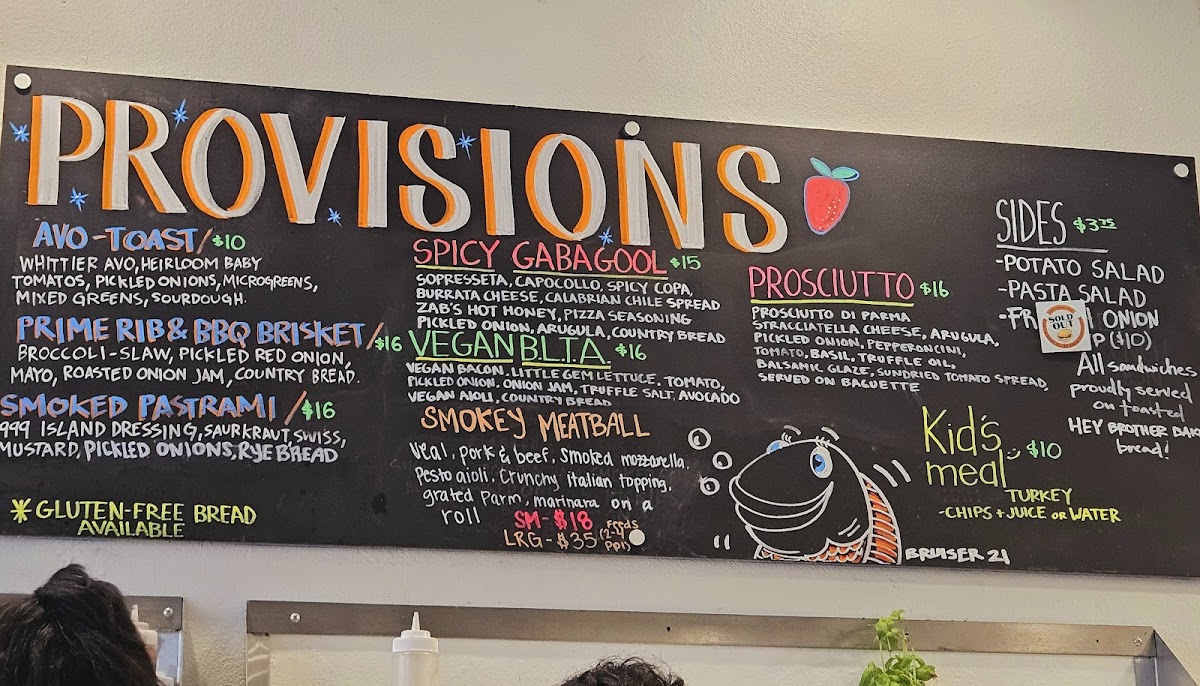 PROVISIONS
AVO-TOAST/$10
WHITTIER AVO, HEIRLOOM BABY
TOMATOS, PICKLED ONIONS, MICROGREENS,
MIXED GREENS, SOURDOUGH.
PRIME RIB & BBQ BRISKET/$16
BROCCOLI-SLAW, PICKLED RED ONION,
MAYO, ROASTED ONION JAM, COUNTRY BREAD.
SMOKED PASTRAMI/$16
999 ISLAND DRESSING, SAURKRAUT, SWISS,
MUSTARD, PICKLED ONIONS, RYE BREAD
*GLUTEN-FREE BREAD
AVAILABLE
SPICY GABAGOOL $15
SOPRESSETA, CAPOCOLLO, SPICY COPA,
BURRATA CHEESE, CALABRIAN CHILE SPREAD
ZAB'S HOT HONEY, PIZZA SEASONING
PICKLED ONION, ARUGULA, COUNTRY BREAD
VEGAN B.L.T.A. $16
VEGAN BACON, LITTLE GEM LETTUCE, TOMATO,
PICKLED ONION, ONION JAM, TRUFFLE SALT, AVOCADO
VEGAN AIOLI, COUNTRY BREAD
SMOKEY MEATBALL
Veal, pork & beef, Smoked mozzarella,
Pesto aioli, Crunchy italian topping,
grated Parm, marinara on a
roll
SM-$18
LRG-$35 (Feeds 2-4 ppl)
PROSCIUTTO $16
PROSCIUTTO DI PARMA
STRACCIATELLA CHEESE, ARUGULA,
PICKLED ONION, PEPPERONCINI,
TOMATO, BASIL, TRUFFLE OIL,
BALSAMIC GLAZE, SUNDRIED TOMATO SPREAD,
SERVED ON BAGUETTE
BRUISER 21
SIDES $3.75
-POTATO SALAD
-PASTA SALAD
ONION
($10)
SOLD
OUT
All sandwiches
proudly served
on toasted
HEY BROTHER
bread!
Kid's $10
meal
TURKEY
-CHIPS + JUICE OR WATER